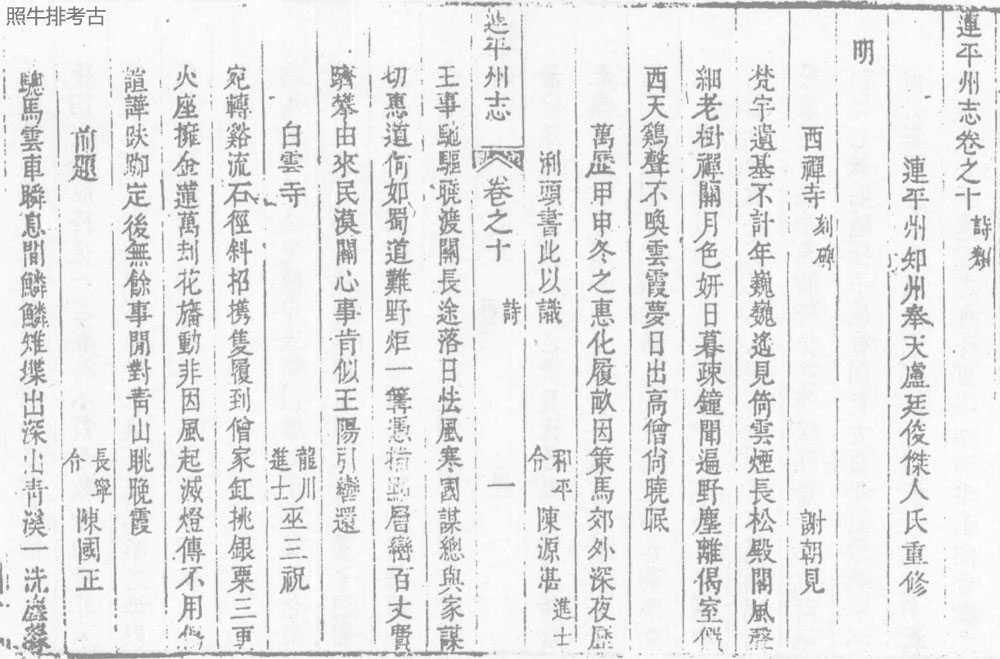 照牛排考古
連平州志卷之十 詩類
連平州知州奉天盧廷俊傑人氏重修
明
西禪寺 刻碑 謝朝見
梵宇遺基不計年巍巍遙見倚雲煙長松殿閣風聲
細老樹禪關月色妍日暮疎鐘聞遍野塵離偈室
西天鷄聲不喚雲霞夢日出高僧尙曉眠
萬歷甲申冬之惠化履畝因策馬郊外深夜歷
浰頭書此以識 和平令陳源湛 進士
連平州志 卷之十 詩 一
王事馳驅曉渡關長途落日怯風寒國謀總與家謀
切惠道何如蜀道難野炬一篝憑指 層巒百丈費
躋攀由來民漠關心事肯似王陽引轡還
白雲寺 龍川進士巫三祝
宛轉谿流石徑斜招携隻履到僧家缸挑銀粟三更
火座擁金蓮萬刦花旛動非因風起滅燈傳不用
諠譁趺跏定後無餘事閒對靑山眺晚霞
前題 長寧令陳國正
驄馬雲車瞬息間鱗鱗雉堞出深山靑溪一洗